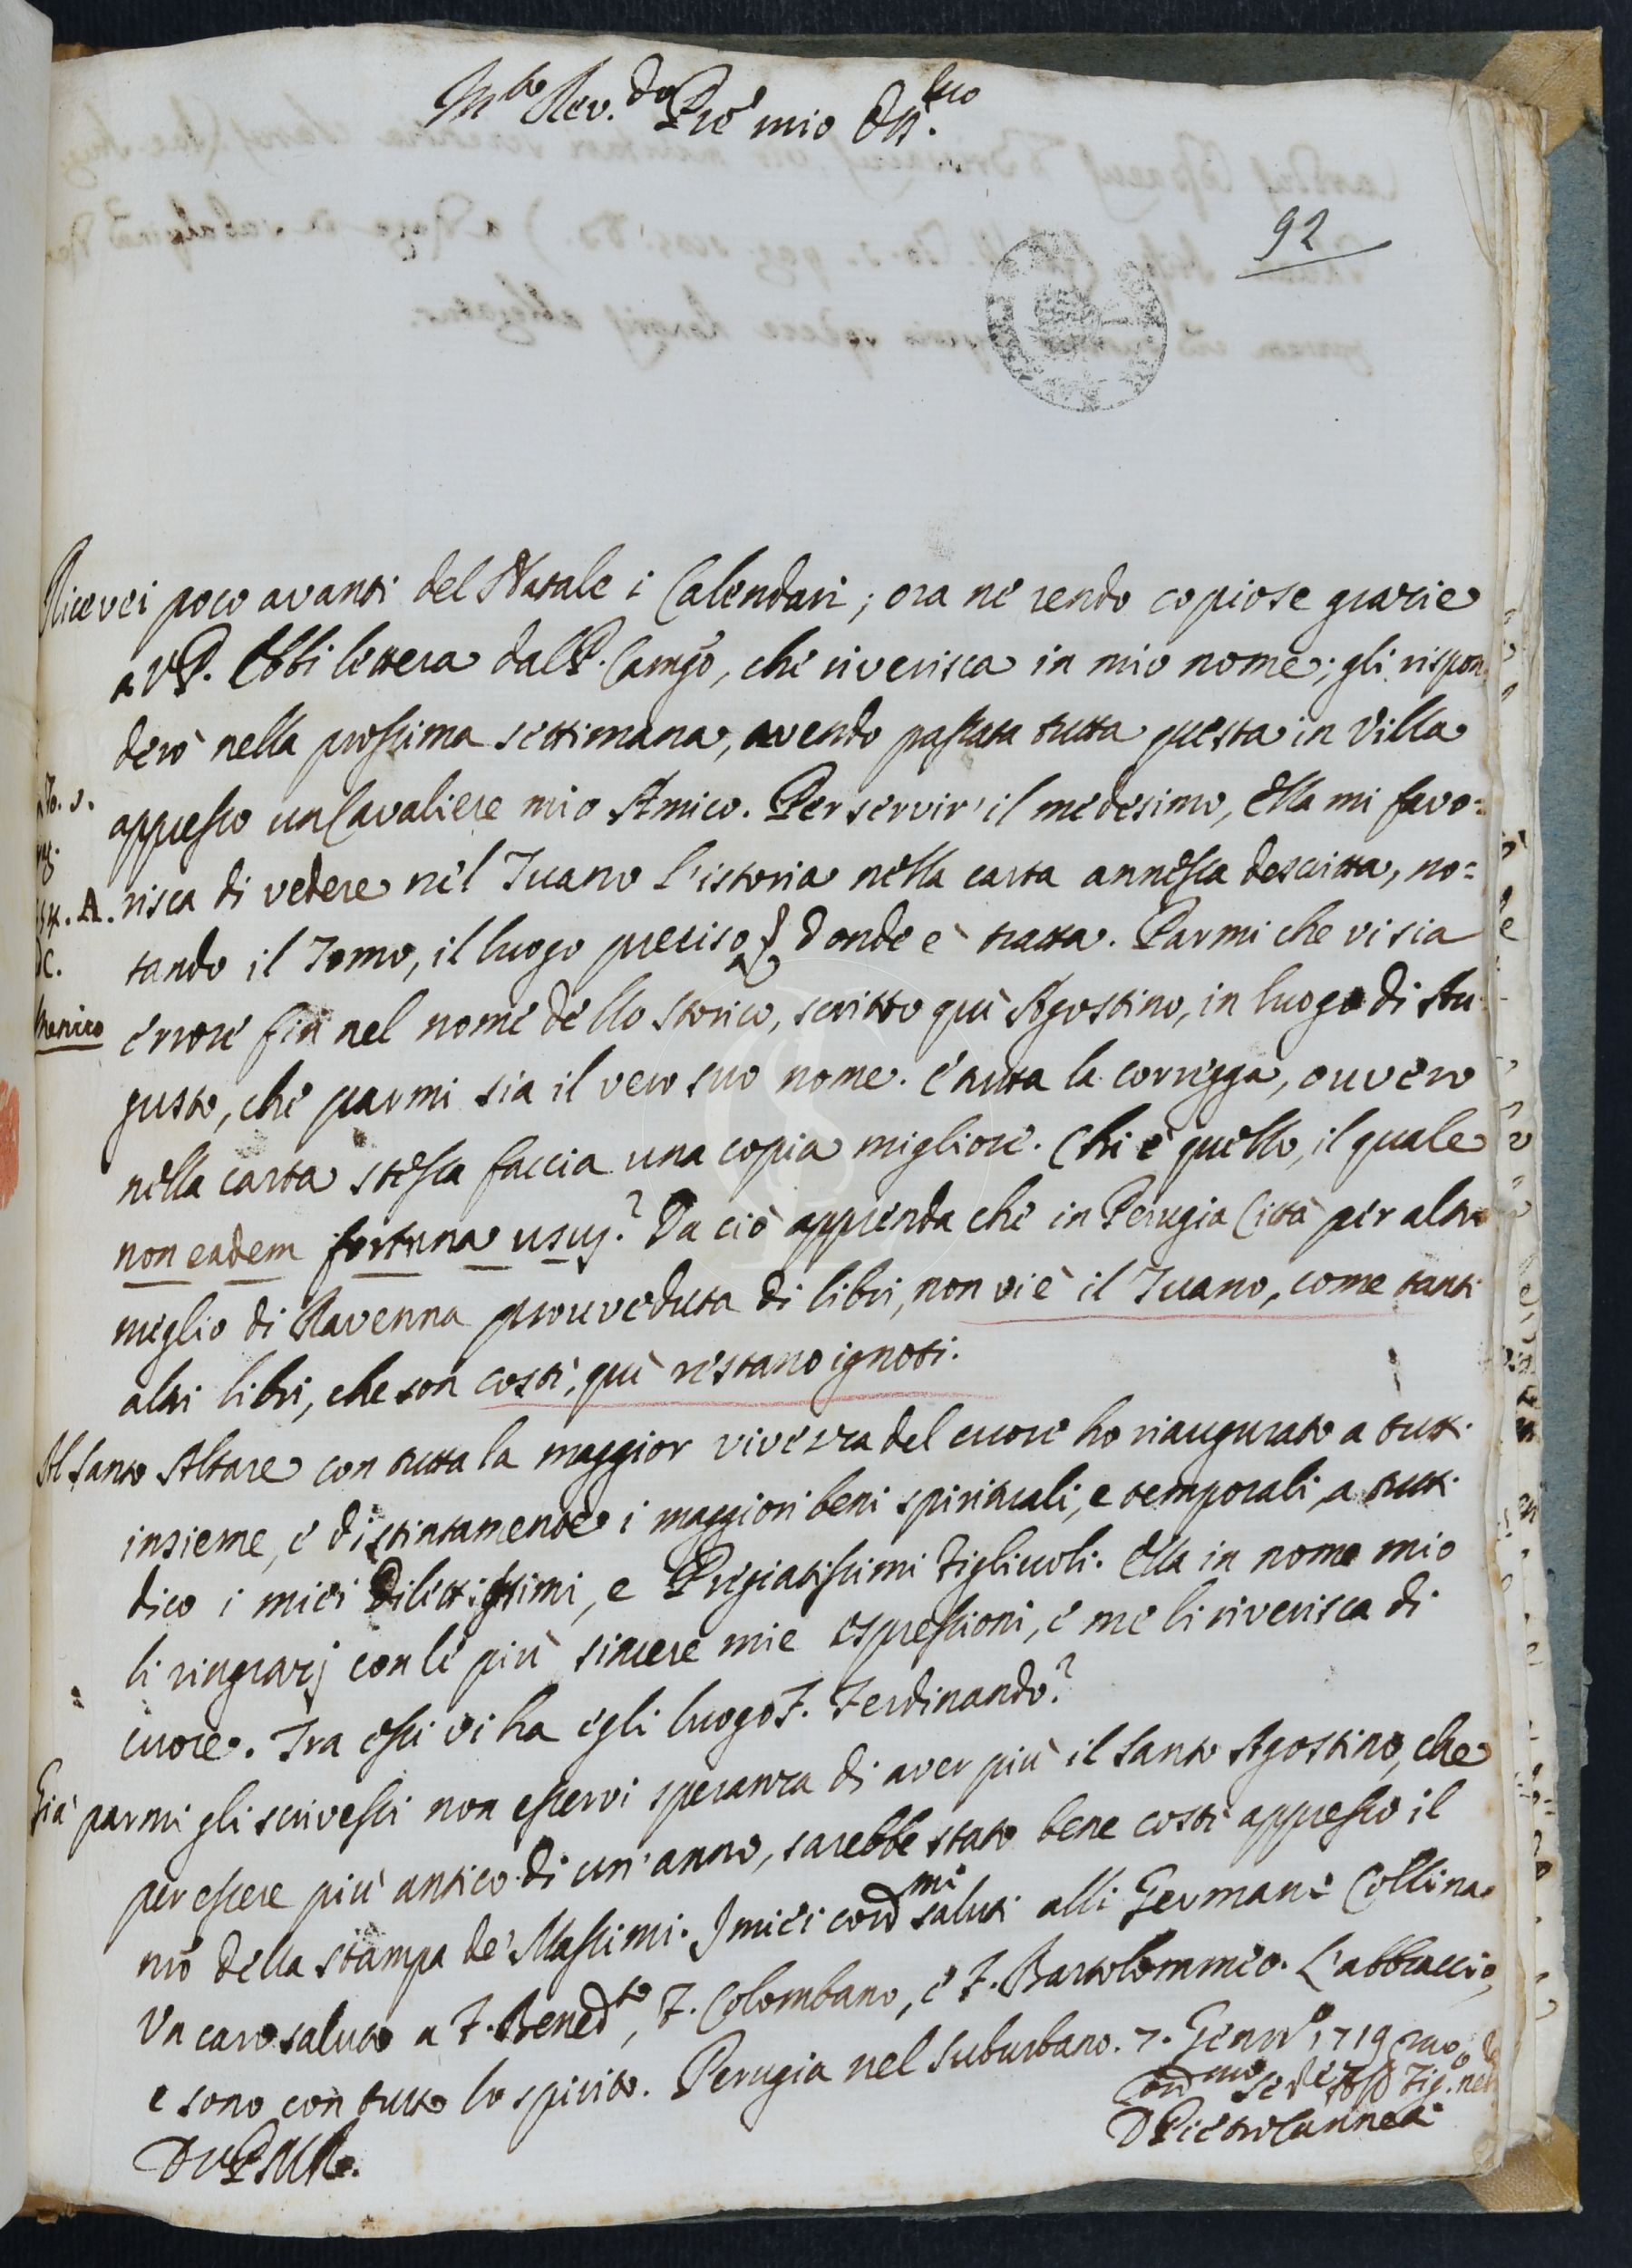 M.to Rev.do Pre mio On.mo
92
Ricevei poco avanti del Natale i Calendari; ora ne rendo copiose grazie
a VP. Ebbi lettera dal P. Camgo, che riverisca in mio nome; gli rispon
derò nella prossima settimana, avendo passata tutta questa in Villa
appresso un Cavaliere mio Amico. Per servir' il medesimo, Ella mi favo=
risca di vedere nel Tuano l'istoria nella carta annessa descritta, no=
tando il Tomo, il luogo preciso, donde è tratta. Parmi che vi sia
errore fin nel nome dello storico, scritto quì Agostino, in luogo di Au
gusto, che parmi sia il vero suo nome. e tutta la corregga, ovvero
nella carta stessa faccia una copia migliore. Chi è quello, il quale
non eadem fortuna usus? Da ciò apprenda che in Perugia Città per altro
meglio di Ravenna provveduta di libri, non vi è il Tuano, come tanti
altri libri, che son costì, quì restano ignoti.
Al Santo Altare con tutta la maggior vivezza del cuore ho riaugurato a tutti
insieme, e distintamente i maggiori beni spirituali, e temporali, a tutti
dico i miei Dilettissimi, e Pregiatissimi Figliuoli. Ella in nome mio
li ringrazj con le più sincere mie espressioni, e me li riverisca di
cuore. Tra essi vi ha egli luogo F. Ferdinando?
Già parmi gli scrivessi non esservi speranza di aver più il Santo Agostino, che
per essere più antico di un'anno, sarebbe stato bene costì appresso il
nrõ della stampa de' Massimi. I miei cord.mi saluti alli Germani Collina.
Un caro saluto a F. Bened.to, F. Colombano, e F. Bartolommeo. L'abbraccio,
e sono con tutto lo spirito. Perugia nel Suburbano. 7. Genn.o 1719
D Pietro Canneti